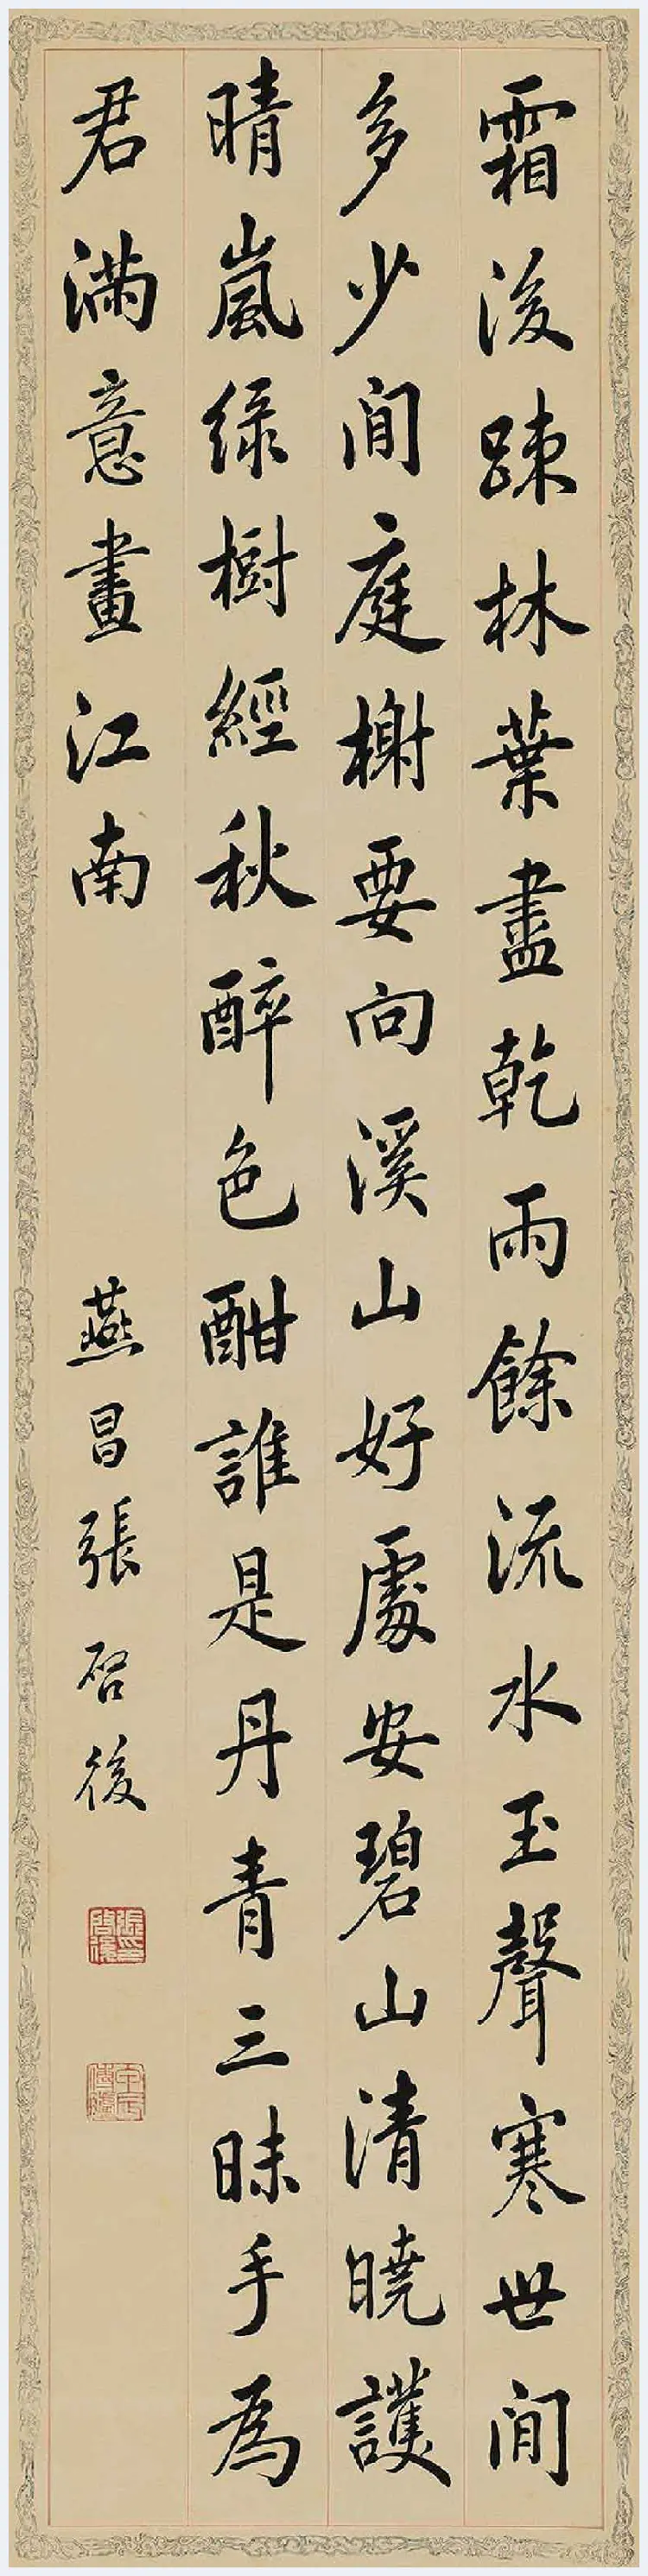 霜後踈林葉盡乾雨餘流水玉聲寒世間
多少間庭榭要向溪山好處安碧山清曉護
晴嵐綠樹經秋醉色酣誰是丹青三昧手為
君滿意畫江南
燕昌張啓後
張印啓後
甲辰傳臚